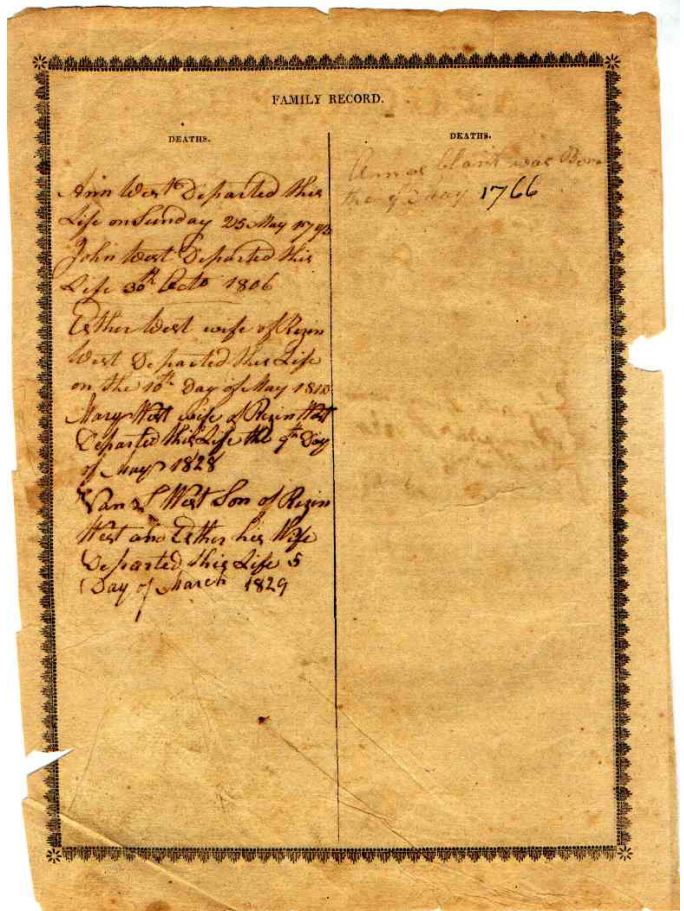 FAMILY RECORD.
DEATHS.
Ann West Departed this
Life on Sunday 25 May
John West Departed this
Life 30th Octo 1806
Esther West wife of Rezin
West Departed this Life
on the 10th Day of May
Mary West wife of Rezin West
Departed this Life the 9th Day
of May 1828
Van S West Son of Rezin
West and Esther his Wife
Departed this Life 5
Day of March 1829
DEATHS.
was Born
the May 1766